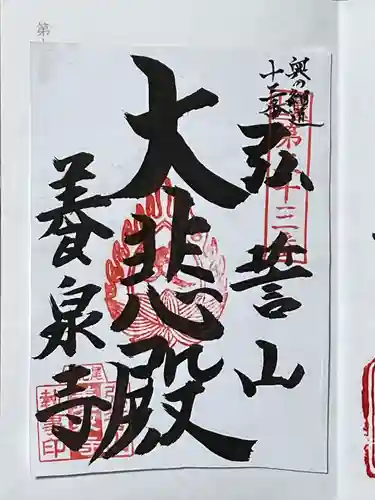 奥の細道
十三番
弘誓山
大悲殿
養泉寺
第十三
第
印